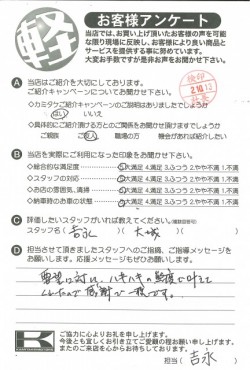 軽
お客様アンケート
当店では、お買い上げ頂いたお客様の声を可能
な限り現場に反映し、お客様により良い商品と
サービスを提供する事に努めています。
大変お手数ですが是非お声をお聞かせ下さい。
検印
2.10.12
A 当店はご紹介を大切にしております。
ご紹介キャンペーンについてお聞かせ下さい。
◇カミタケご紹介キャンペーンのご説明はありましたでしょうか
はい いいえ
◇具体的にご紹介頂ける方とのご関係をお聞かせ頂けますでしょうか
ご親族 ご友人 職場の方 機会があれば紹介したい
B 当店を実際にご利用になった印象をお聞かせ下さい。
◇総合的な満足度 5.大満足 4.満足 3.ふつう 2.やや不満 1.不満
◇スタッフの対応 5.大満足 4.満足 3.ふつう 2.やや不満 1.不満
◇お店の雰囲気、清掃 5.大満足 4.満足 3.ふつう 2.やや不満 1.不満
◇納車時のお車の状態 5.大満足 4.満足 3.ふつう 2.やや不満 1.不満
C 評価したいスタッフがいれば教えてください。(複数回答可)
スタッフ名( 吉永 )( 大塚 )
D 担当させて頂きましたスタッフへのご指摘、ご指導メッセージを
お願いします。応援メッセージもぜひお願いします。
要望に対し、ハキハキの態度で叶えて
くれたので感謝で一杯です。
K
ご協力に心よりお礼を申し上げます。
今後とも宜しくお引き立てご愛顧の程お願い申し上げます。
またのご来店を心からお待ちしております。
担当( 吉永 )